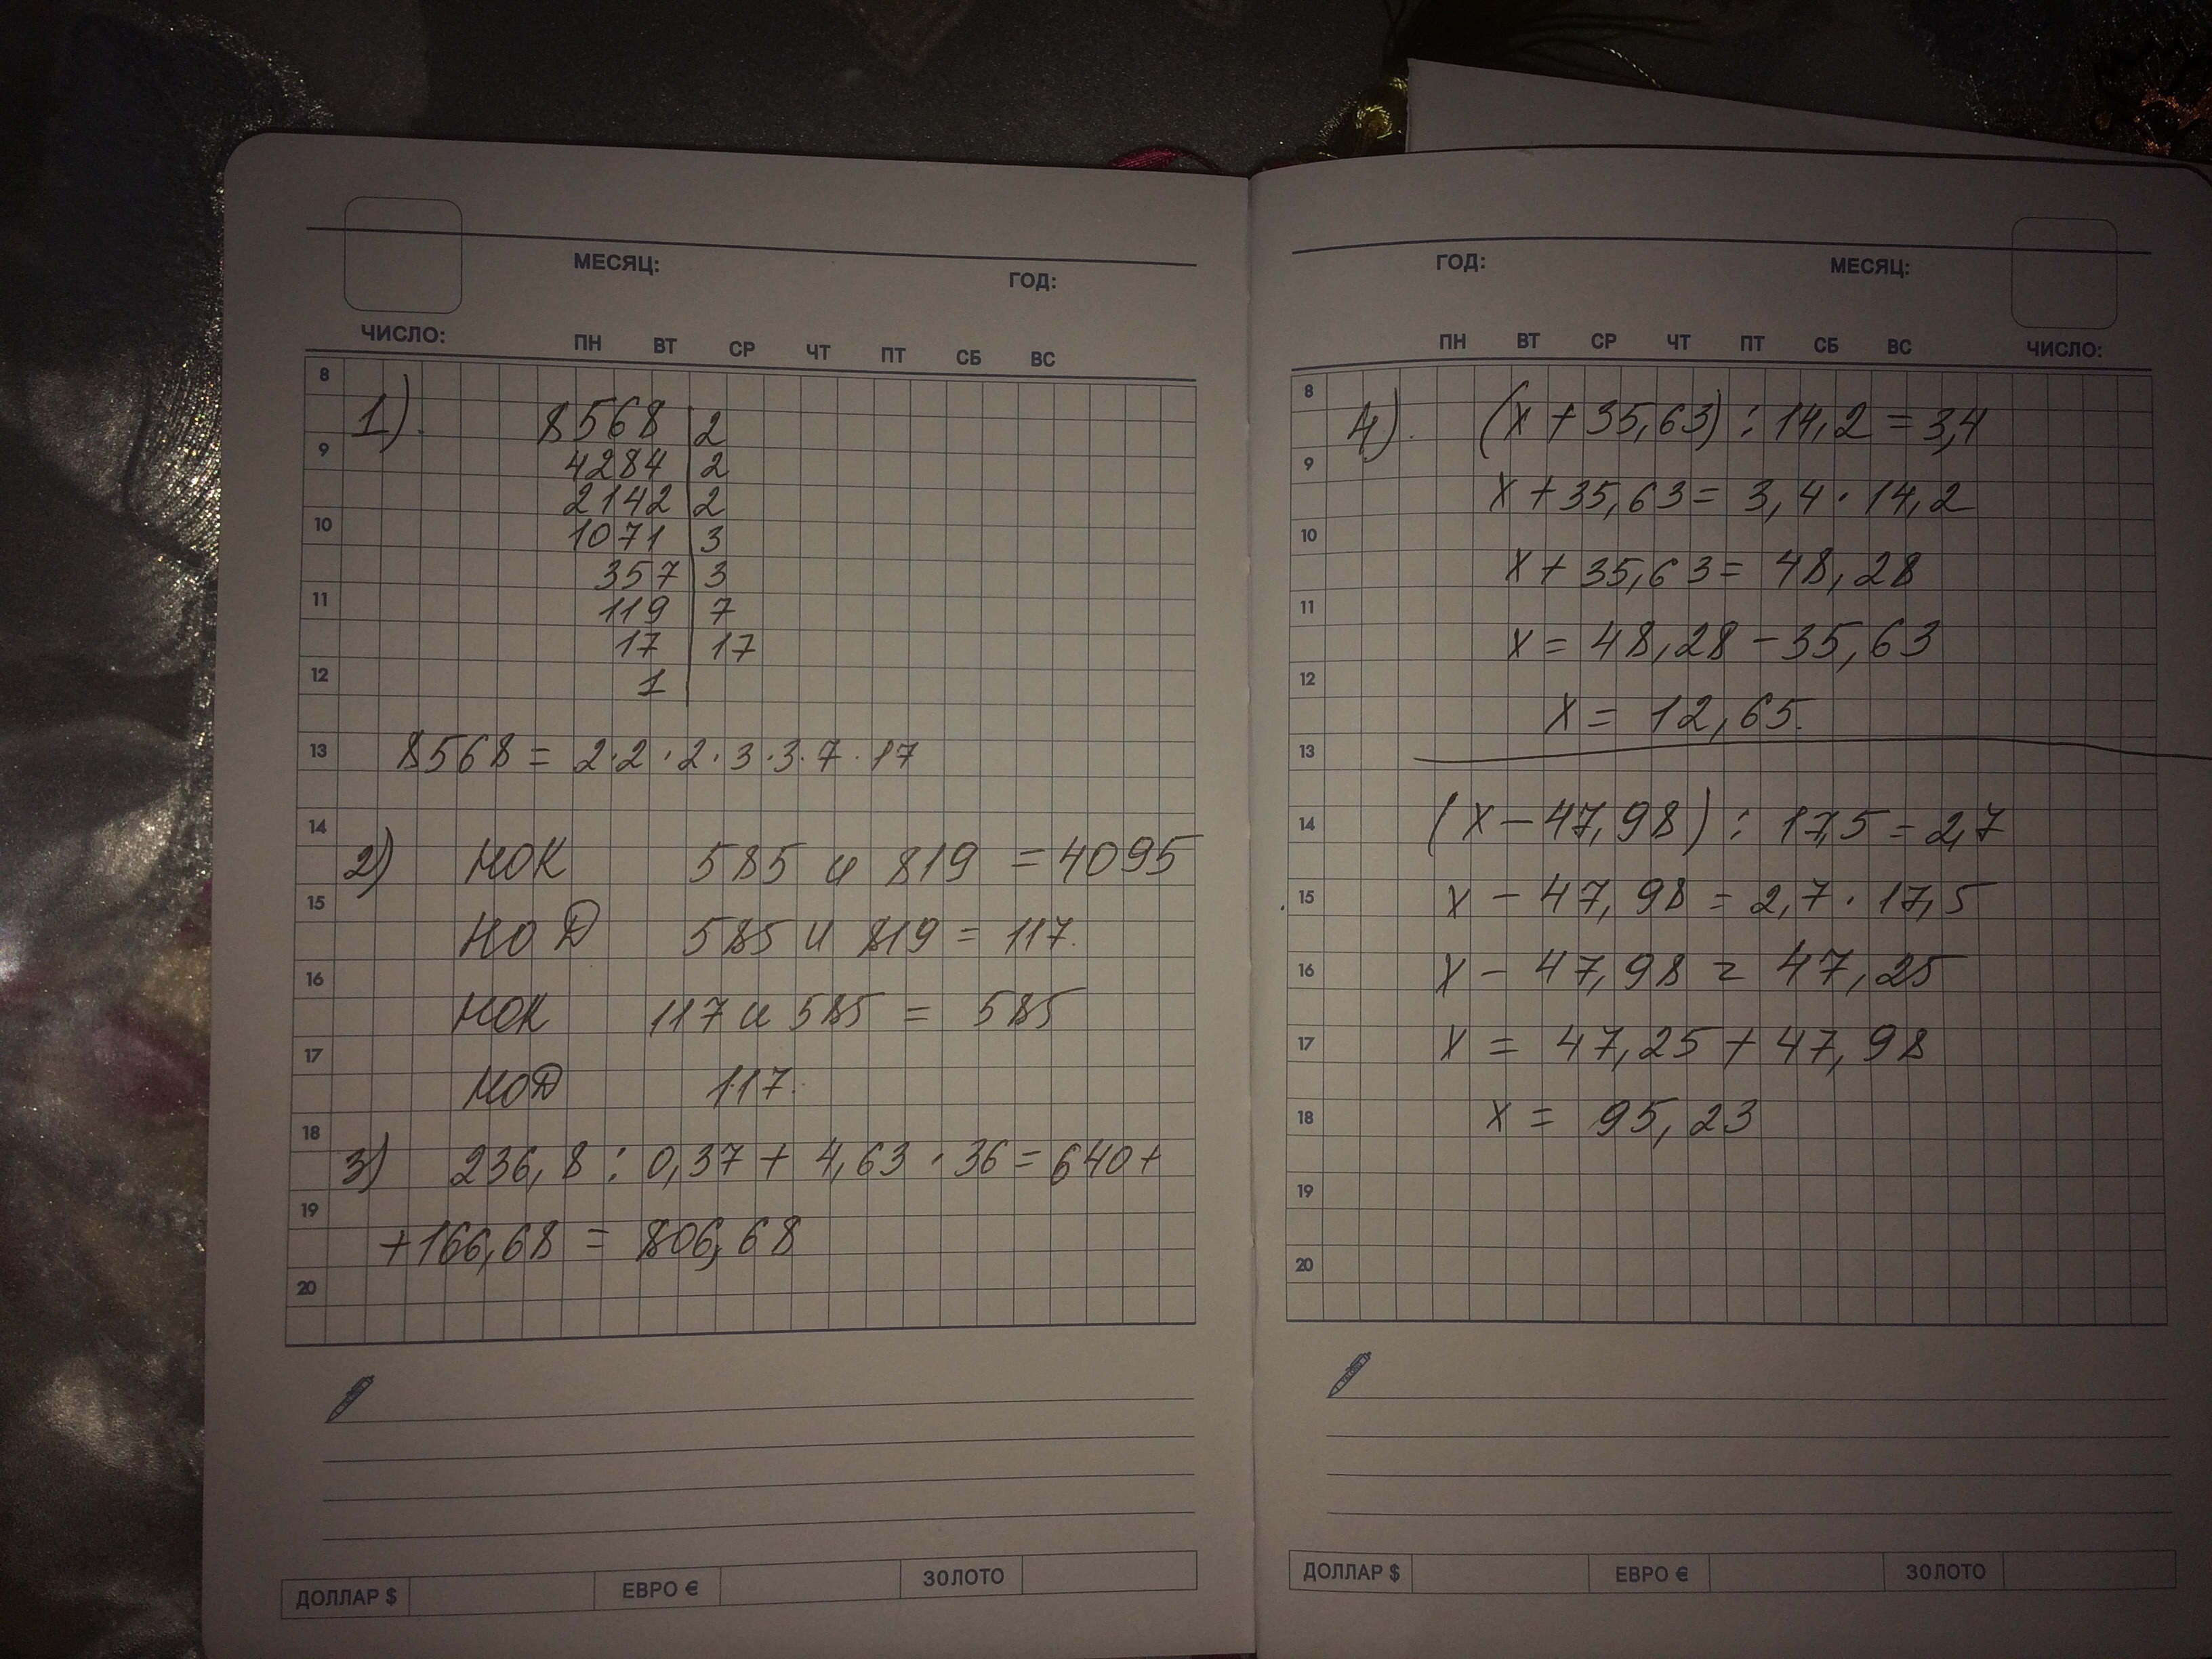 МЕСЯЦ:
ГОД:
ЧИСЛО:
ПН ВТ СР ЧТ ПТ СБ ВС
8
1).
8568 2
9
4284 2
2142 2
10
1071 3
357 3
11
119 7
17 17
12
1
13
8568 = 2·2·2·3·3·7·17
14
2) НОК 585 и 819 = 4095
15
НОД 585 и 819 = 117.
16
НОК 117 и 585 = 585
17
НОД 117.
18
3) 236,8 : 0,37 + 4,63 · 36 = 640 +
19
+166,68 = 806,68
20
ДОЛЛАР $ ЕВРО € ЗОЛОТО
ГОД:
МЕСЯЦ:
ПН ВТ СР ЧТ ПТ СБ ВС
ЧИСЛО:
8
4). (x + 35,63) : 14,2 = 3,4
9
x + 35,63 = 3,4 · 14,2
10
x + 35,63 = 48,28
11
x = 48,28 - 35,63
12
x = 12,65.
13
14
(x - 47,98) : 17,5 = 2,7
15
x - 47,98 = 2,7 · 17,5
16
x - 47,98 = 47,25
17
x = 47,25 + 47,98
18
x = 95,23
19
20
ДОЛЛАР $ ЕВРО € ЗОЛОТО